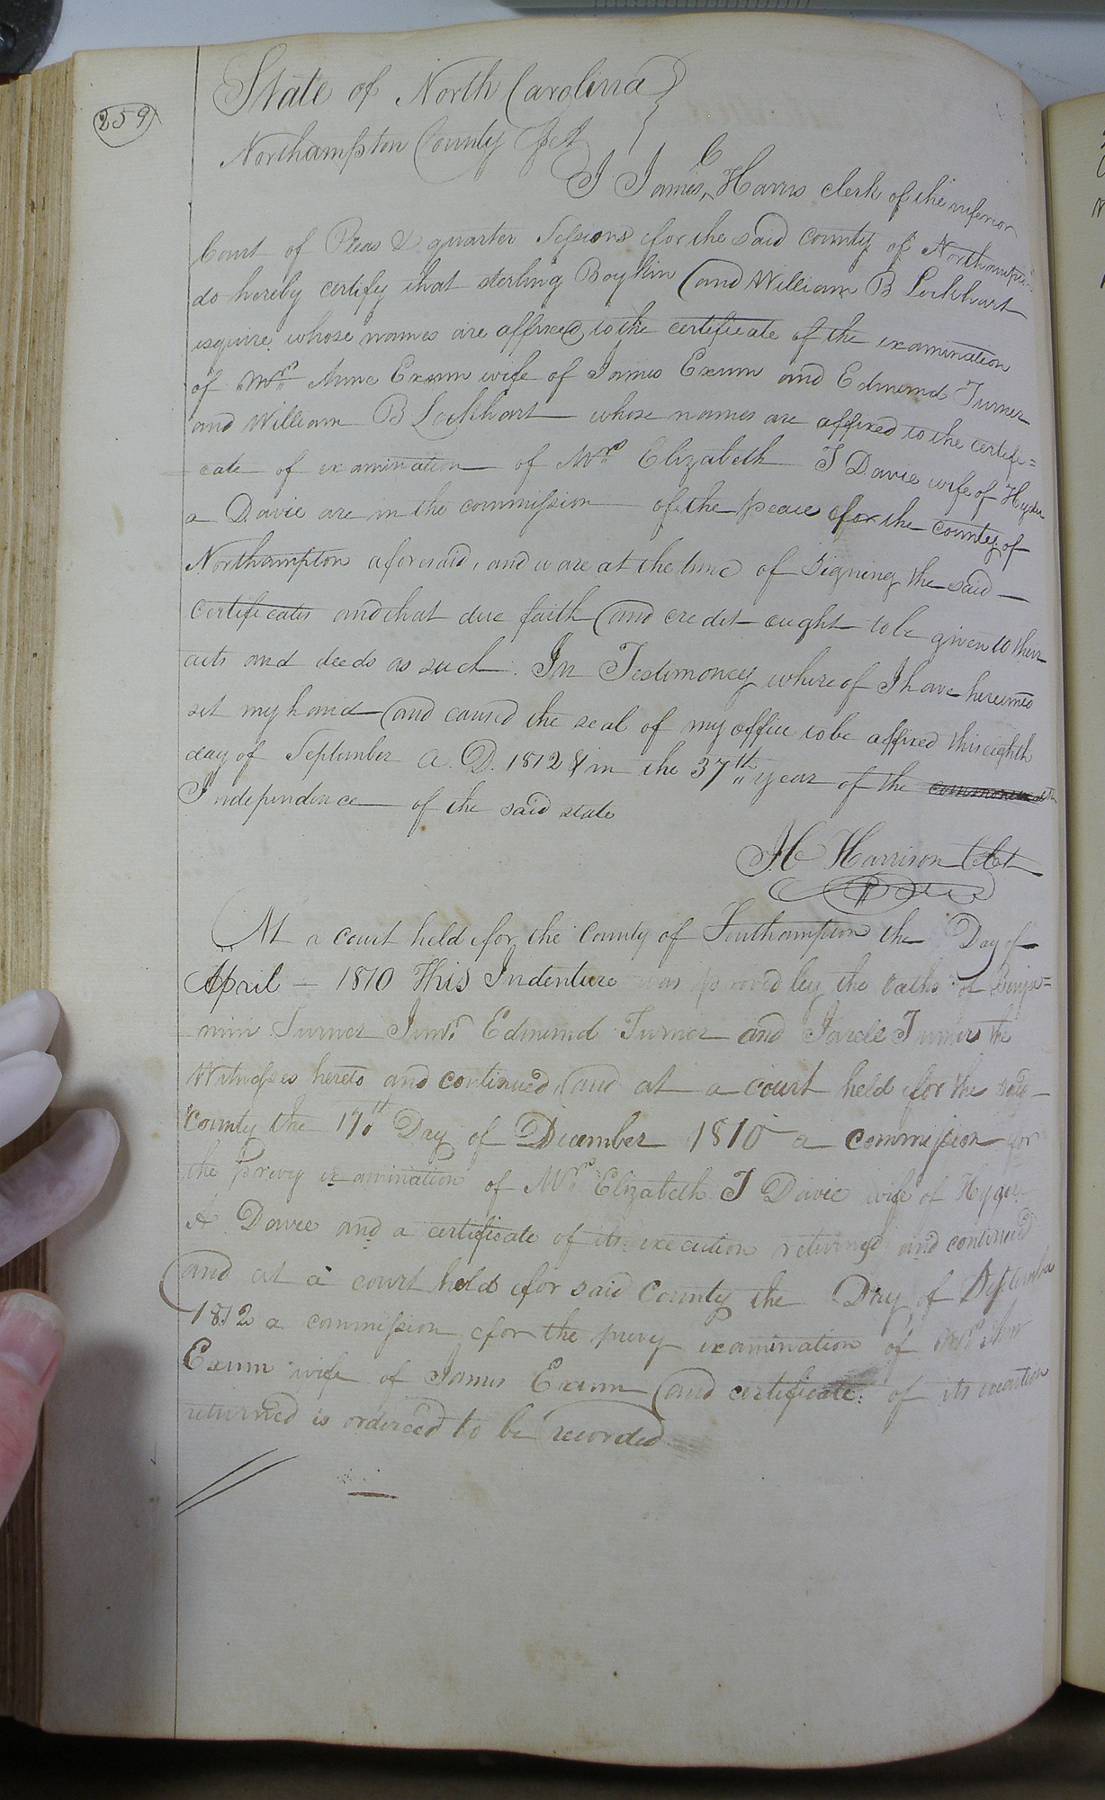 259
State of North Carolina
Northampton County Sct
I James C Harris clerk of the inferior
Court of Pleas & quarter Sessions for the said county of Northampton
do hereby certify that sterling Boykin and William B Lockhart
esquire whose names are affixed to the certificate of the examination
of Mrs Anne Exum wife of James Exum and Edmund Turner
and William B Lockhart whose names are affixed to the certifi=
cate of examination of Mrs Elizabeth T Davie wife of Hyder
a Davie are in the commission of the peace for the county of
Northampton aforesaid, and ware at the time of signing the said
certificates and that due faith and credit ought to be given to their
acts and deeds as such. In Testimoney whereof I have hereunto
set my hand and caused the seal of my office to be affixed this eighth
day of September A. D. 1812 & in the 37th year of the
Independence of the said state
J C Harrison
At a court held for the County of Southampton the Day of
April 1810 This Indenture was proved by the oaths of Benja=
min Turner Junr Edmund Turner and Turner the
Witnesses hereto and continued, and at a court held for the said
County the 17th Day of December 1810 a commission for
the privey examination of Mrs Elizabeth T Davie wife of
A Davie and a certificate of its execution returned and continued
and at a court held for said County the Day of September
1812 a commission for the privy examination of Mrs Ann
Exum wife of James Exum and certificate of its execution
returned is ordered to be recorded